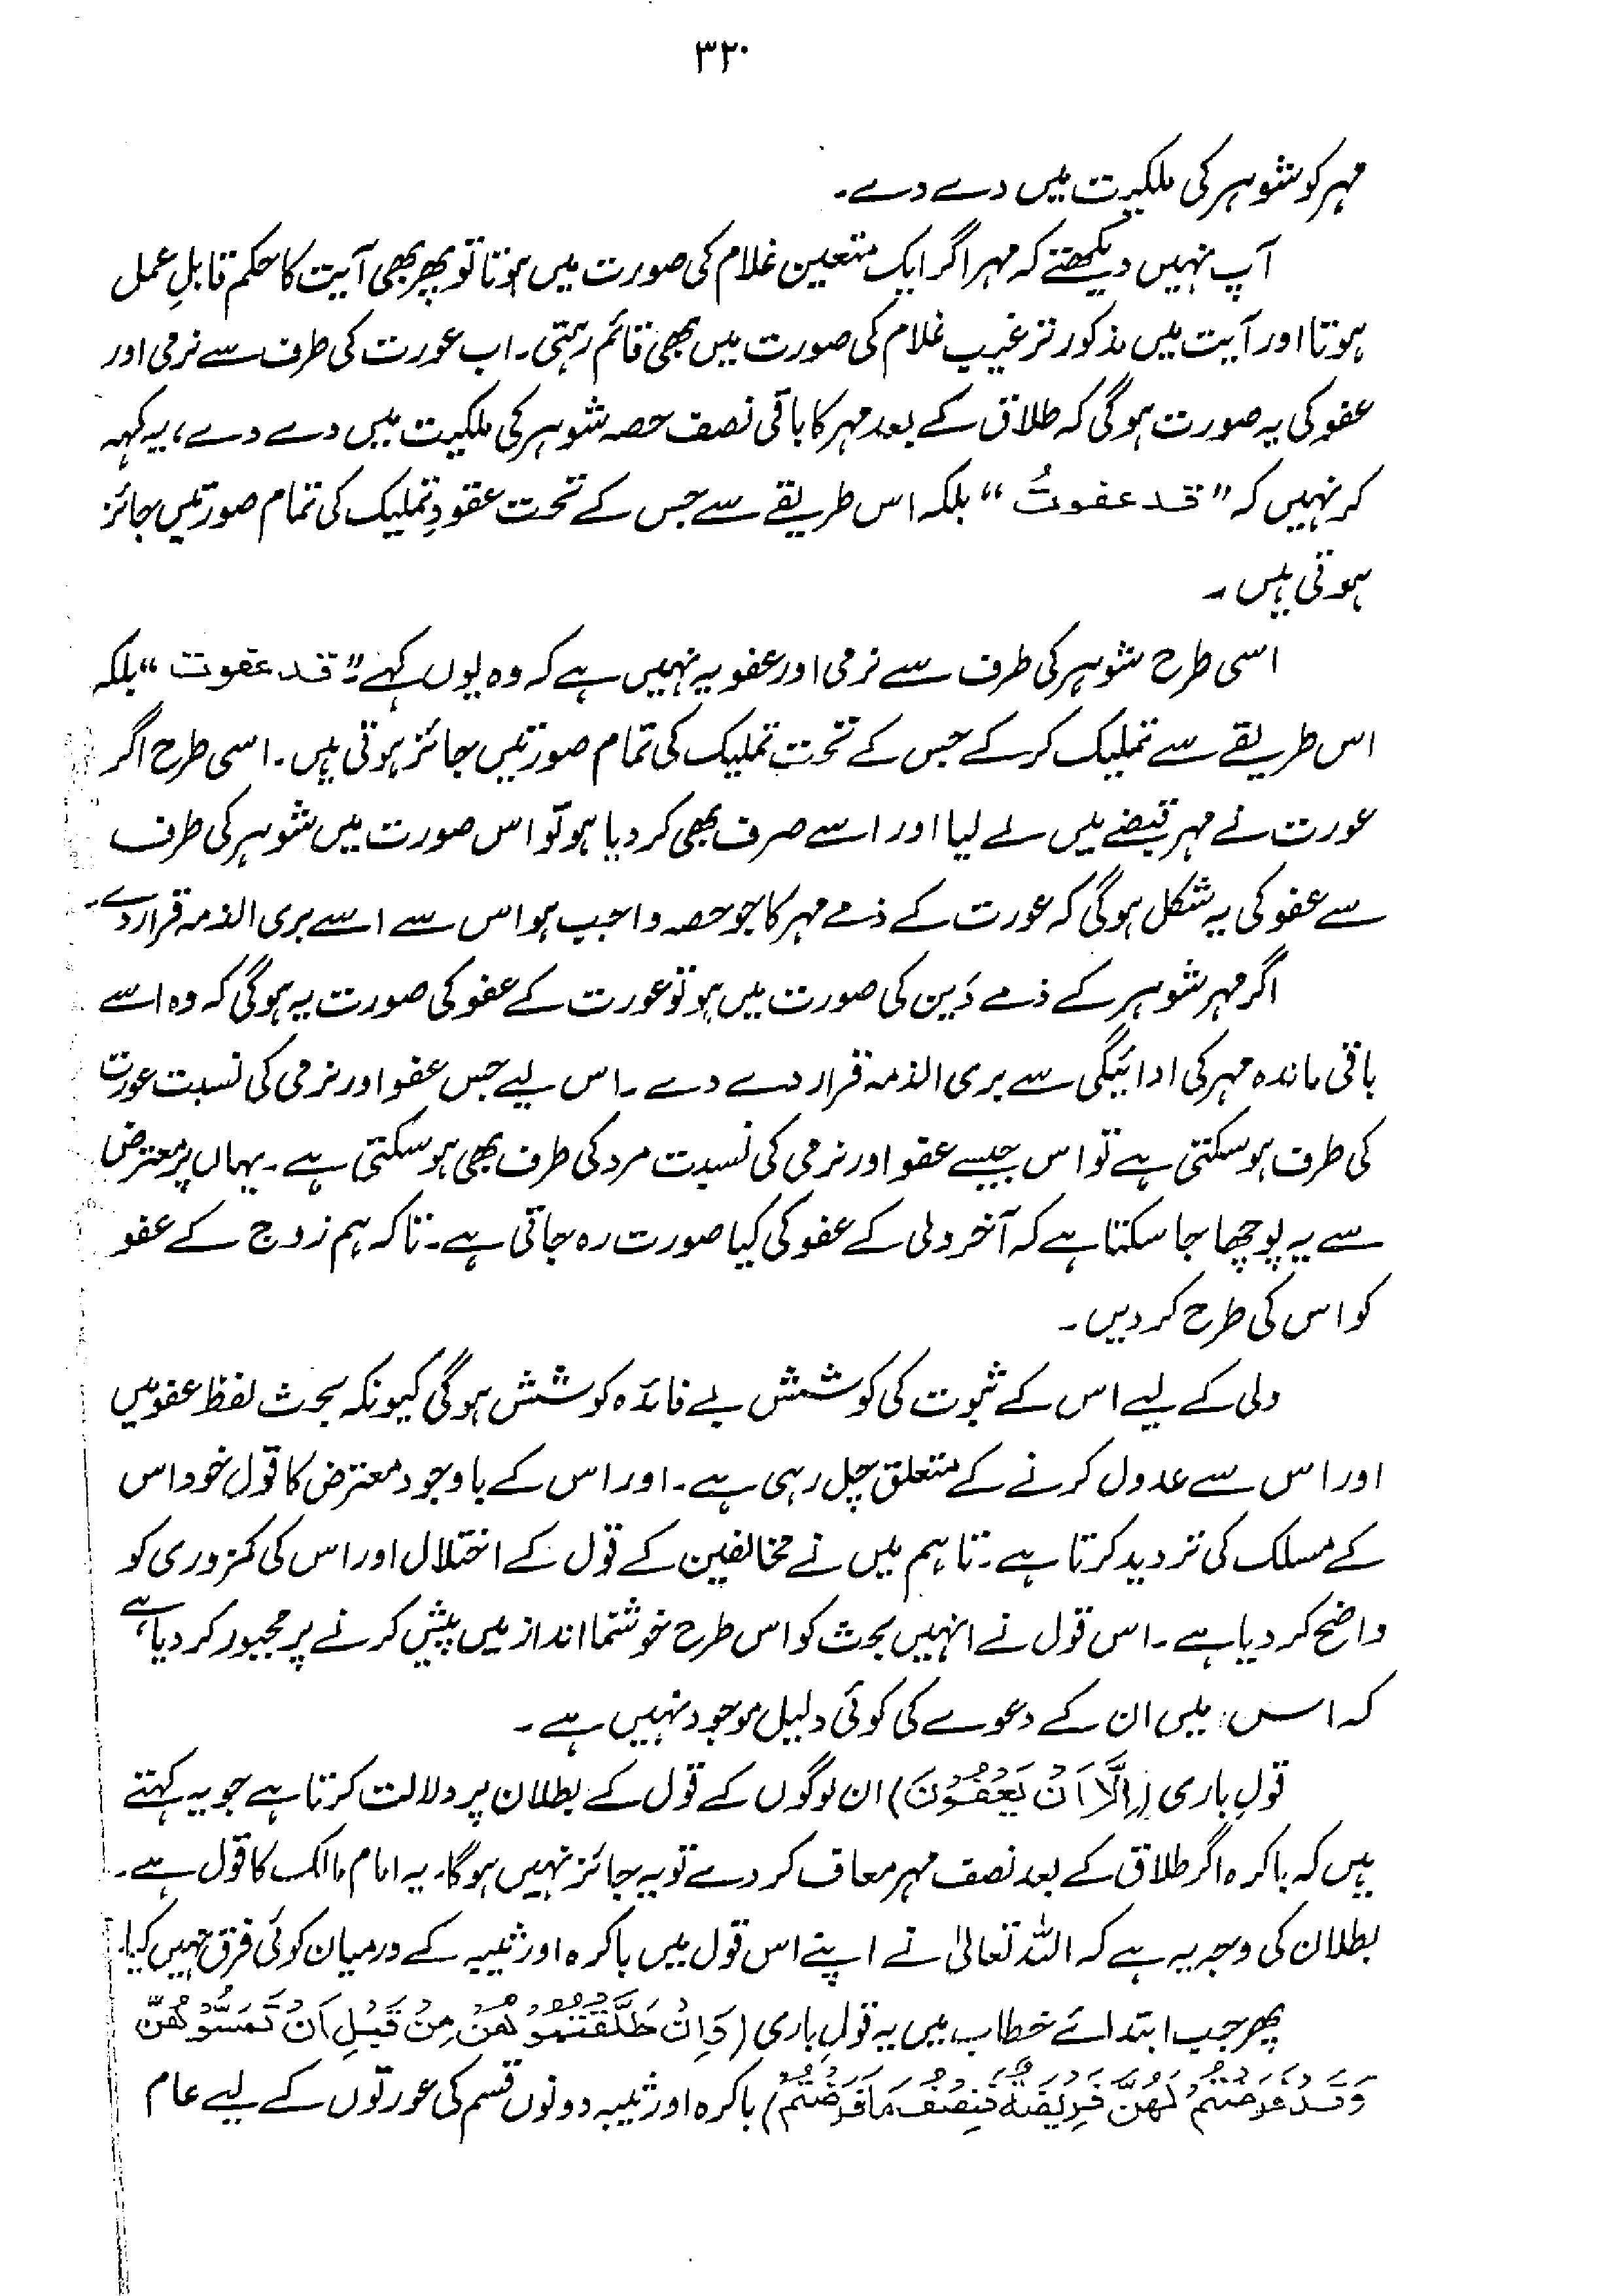 ۳۲۰
مہر کو شوہر کی ملکیت میں دے دے۔
آپ نہیں دیکھتے کہ مہر اگر ایک متعین غلام کی صورت میں ہوتا تو پھر بھی آیت کا حکم قابلِ عمل
ہوتا اور آیت میں مذکور ترغیب غلام کی صورت میں بھی قائم رہتی۔ اب عورت کی طرف سے نرمی اور
عفو کی یہ صورت ہوگی کہ طلاق کے بعد مہر کا باقی نصف حصہ شوہر کی ملکیت میں دے دے، یہ کہہ
کر نہیں کہ "قد عفوتُ" بلکہ اس طریقے سے جس کے تحت عقودِ تملیک کی تمام صورتیں جائز
ہوتی ہیں۔
اسی طرح شوہر کی طرف سے نرمی اور عفو یہ نہیں ہے کہ وہ یوں کہے "قد عفوت" بلکہ
اس طریقے سے تملیک کر کے جس کے تحت تملیک کی تمام صورتیں جائز ہوتی ہیں۔ اسی طرح اگر
عورت نے مہر قبضے میں لے لیا اور اسے صرف بھی کر دیا ہو تو اس صورت میں شوہر کی طرف
سے عفو کی یہ شکل ہوگی کہ عورت کے ذمے مہر کا جو حصہ واجب ہو اس سے اسے بری الذمہ قرار دے۔
اگر مہر شوہر کے ذمے دَین کی صورت میں ہو تو عورت کے عفو کی صورت یہ ہوگی کہ وہ اسے
باقی ماندہ مہر کی ادائیگی سے بری الذمہ قرار دے دے۔ اس لیے جس عفو اور نرمی کی نسبت عورت
کی طرف ہو سکتی ہے تو اس جیسے عفو اور نرمی کی نسبت مرد کی طرف بھی ہو سکتی ہے۔ یہاں پر معترض
سے یہ پوچھا جا سکتا ہے کہ آخر ولی کے عفو کی کیا صورت رہ جاتی ہے۔ تاکہ ہم زوج کے عفو
کو اس کی طرح کر دیں۔
ولی کے لیے اس کے ثبوت کی کوشش بے فائدہ کوشش ہوگی کیونکہ بحث لفظ عفو میں
اور اس سے عدول کرنے کے متعلق چل رہی ہے۔ اور اس کے باوجود معترض کا قول خود اس
کے مسلک کی تردید کرتا ہے۔ تاہم میں نے مخالفین کے قول کے اختلال اور اس کی کمزوری کو
واضح کر دیا ہے۔ اس قول نے انہیں بحث کو اس طرح خوشنما انداز میں پیش کرنے پر مجبور کر دیا ہے،
کہ اس میں ان کے دعوے کی کوئی دلیل موجود نہیں ہے۔
قولِ باری (اِلَّا اَنْ یَعْفُوْنَ) ان لوگوں کے قول کے بطلان پر دلالت کرتا ہے جو یہ کہتے
ہیں کہ باکرہ اگر طلاق کے بعد نصف مہر معاف کر دے تو یہ جائز نہیں ہوگا۔ یہ امام مالک کا قول ہے۔
بطلان کی وجہ یہ ہے کہ اللہ تعالیٰ نے اپنے اس قول میں باکرہ اور ثیبہ کے درمیان کوئی فرق نہیں کیا۔
پھر جب ابتدائے خطاب میں یہ قولِ باری (وَاِنْ طَلَّقْتُمُوْھُنَّ مِنْ قَبْلِ اَنْ تَمَسُّوْھُنَّ
وَقَدْ فَرَضْتُمْ لَھُنَّ فَرِیْضَۃً فَنِصْفُ مَا فَرَضْتُمْ) باکرہ اور ثیبہ دونوں قسم کی عورتوں کے لیے عام